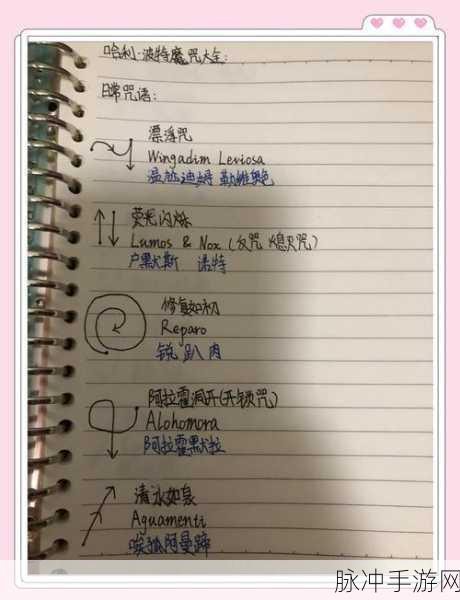 哈利·波特魔咒大全:
日常咒语:
漂浮咒
Wingadim Leviosa
温加迪姆 勒维奥萨
荧光闪烁
Lumos & Nox (反咒 熄灭咒)
卢默斯 诺特
修复如初
Reparo
锐趴肉
阿拉霍洞开(开锁咒)
Alohomora
阿拉霍默拉
清水如泉
Aguamenti
唉孤阿曼蹄
脉冲手游网